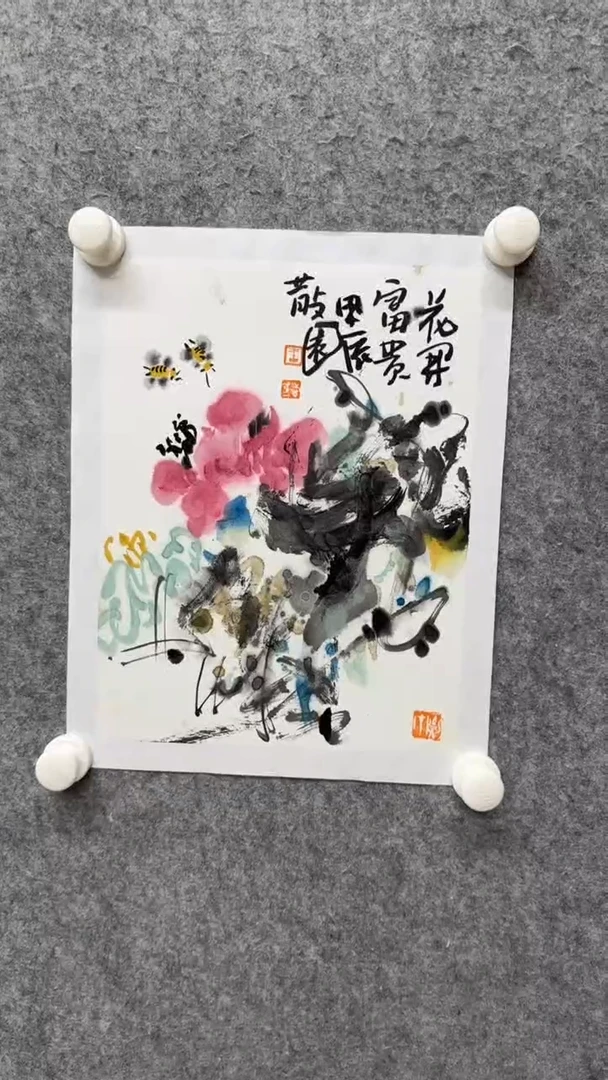 花开
富贵
甲辰
散园